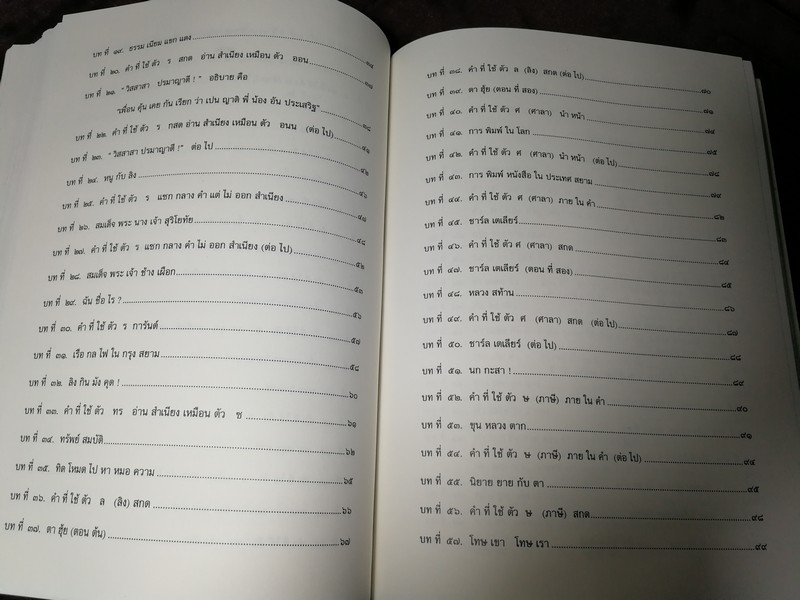 บท ที่ ๑๙. ธรรม เนียม แขก แดง
บท ที่ ๒๐. คำ ที่ ใช้ ตัว ร สกด อ่าน สำเนียง เหมือน ตัว ออน
บท ที่ ๒๑. "วิสสาสา ปรมาญาติ !" อธิบาย คือ
"เพื่อน คุ้น เคย กัน เรียก ว่า เปน ญาติ พี่ น้อง อัน ประเสริฐ" ๓๘
บท ที่ ๒๒. คำ ที่ ใช้ ตัว ร กสด อ่าน สำเนียง เหมือน ตัว อนน (ต่อ ไป) ๔๑
บท ที่ ๒๓. "วิสสาสา ปรมาญาติ !" ต่อ ไป ๔๒
บท ที่ ๒๔. หนู กับ ลิง ๔๖
บท ที่ ๒๕. คำ ที่ ใช้ ตัว ร แซก กลาง คำ แต่ ไม่ ออก สำเนียง ๔๗
บท ที่ ๒๖. สมเด็จ พระ นาง เจ้า สุริโยทัย ๔๘
บท ที่ ๒๗. คำ ที่ ใช้ ตัว ร แซก กลาง คำ ไม่ ออก สำเนียง (ต่อ ไป) ๕๒
บท ที่ ๒๘. สมเด็จ พระ เจ้า ช้าง เผือก ๕๓
บท ที่ ๒๙. ฉัน ชื่อ ไร ? ๕๖
บท ที่ ๓๐. คำ ที่ ใช้ ตัว ร การันต์ ๕๗
บท ที่ ๓๑. เรือ กล ไฟ ใน กรุง สยาม ๕๘
บท ที่ ๓๒. ลิง กิน มัง คุด ! ๖๐
บท ที่ ๓๓. คำ ที่ ใช้ ตัว ทร อ่าน สำเนียง เหมือน ตัว ซ ๖๑
บท ที่ ๓๔. ทรัพย์ สมบัติ ๖๒
บท ที่ ๓๕. ทิด โหมด ไป หา หมอ ความ ๖๕
บท ที่ ๓๖. คำ ที่ ใช้ ตัว ล (ลิง) สกด ๖๖
บท ที่ ๓๗. ตา ฮุ้ย (ตอน ต้น) ๖๗
บท ที่ ๓๘. คำ ที่ ใช้ ตัว ล (ลิง) สกด (ต่อ ไป) ๗๐
บท ที่ ๓๙. ตา ฮุ้ย (ตอน ที่ สอง) ๗๑
บท ที่ ๔๐. คำ ที่ ใช้ ตัว ศ (ศาลา) นำ หน้า ๗๔
บท ที่ ๔๑. การ พิมพ์ ใน โลก ๗๕
บท ที่ ๔๒. คำ ที่ ใช้ ตัว ศ (ศาลา) นำ หน้า (ต่อ ไป) ๗๘
บท ที่ ๔๓. การ พิมพ์ หนังสือ ใน ประเทศ สยาม ๗๙
บท ที่ ๔๔. คำ ที่ ใช้ ตัว ศ (ศาลา) ภาย ใน คำ ๘๒
บท ที่ ๔๕. ชาร์ล เตเลียร์ ๘๓
บท ที่ ๔๖. คำ ที่ ใช้ ตัว ศ (ศาลา) สกด ๘๔
บท ที่ ๔๗. ชาร์ล เตเลียร์ (ตอน ที่ สอง) ๘๕
บท ที่ ๔๘. หลวง สท้าน ๘๖
บท ที่ ๔๙. คำ ที่ ใช้ ตัว ศ (ศาลา) สกด (ต่อ ไป) ๘๗
บท ที่ ๕๐. ชาร์ล เตเลียร์ (ต่อ ไป) ๘๘
บท ที่ ๕๑. นก กะสา ! ๘๙
บท ที่ ๕๒. คำ ที่ ใช้ ตัว ษ (ภาษี) ภาย ใน คำ ๙๐
บท ที่ ๕๓. ขุน หลวง ตาก ๙๑
บท ที่ ๕๔. คำ ที่ ใช้ ตัว ษ (ภาษี) ภาย ใน คำ (ต่อ ไป) ๙๔
บท ที่ ๕๕. นิยาย ยาย กับ ตา ๙๕
บท ที่ ๕๖. คำ ที่ ใช้ ตัว ษ (ภาษี) สกด ๙๘
บท ที่ ๕๗. โทษ เขา โทษ เรา ๙๙